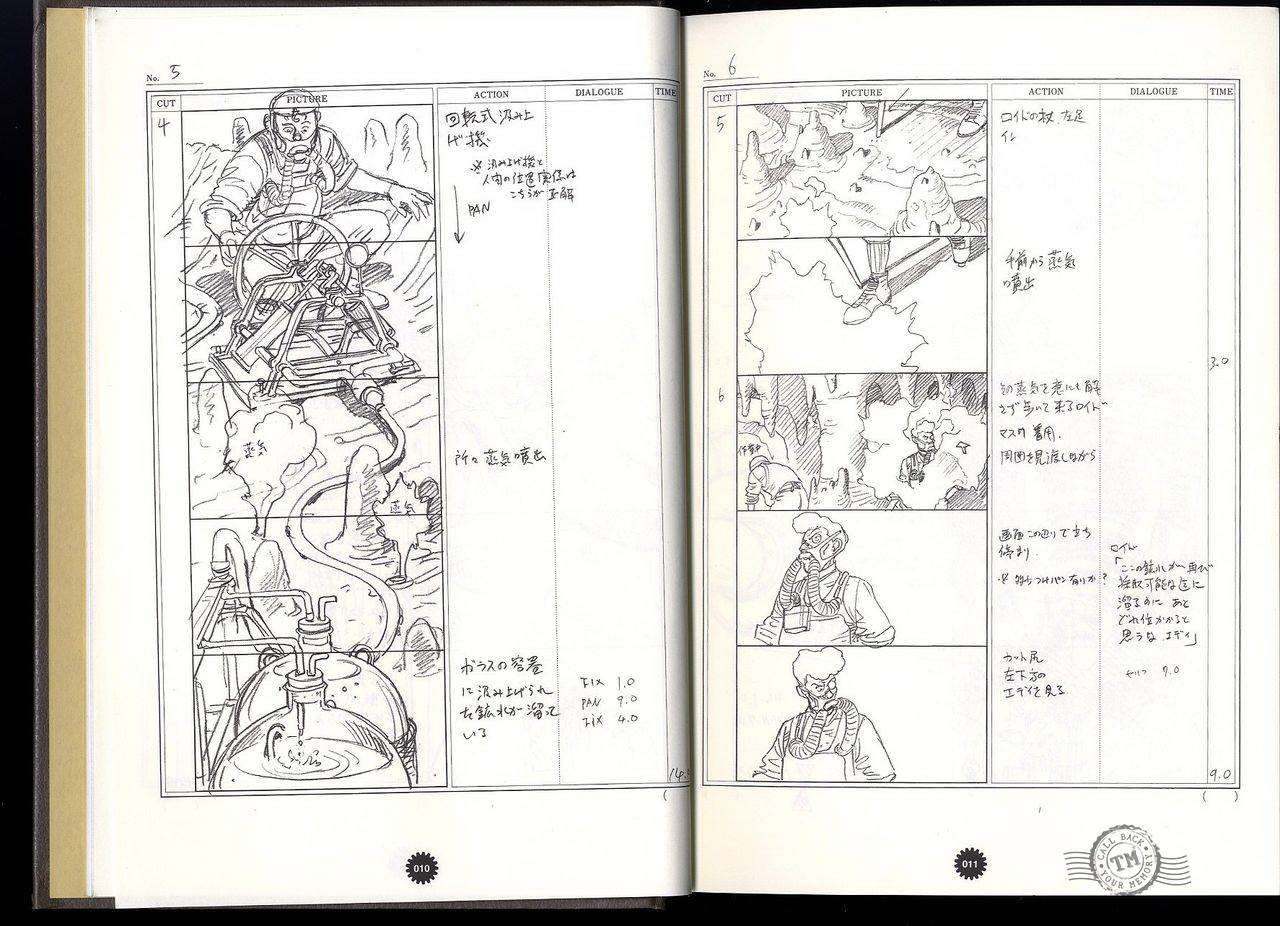 No. 5
CUT PICTURE ACTION DIALOGUE TIME
4
回転式汲み上
げ機
※汲み上げ機と
人間の位置関係は
こちらが正解
PAN
蒸気
蒸気
所々蒸気噴出
ガラスの容器
に汲み上げられ
た鉱水が溜って
いる
FIX 1.0
PAN 9.0
FIX 4.0
14.
(
010
No. 6
CUT PICTURE ACTION DIALOGUE TIME
5
ロイドの杖、左足
イン
手前から蒸気
噴出
3.0
6
作業中
その蒸気を意にも解
さず歩いて来るロイド
マスク着用.
周囲を見渡しながら
画面この辺りで立ち
停まり.
ロイド
「ここの鉱水が再び
採取可能な迄に
溜るのにあと
どれ位かかると
思うな、エディ」
セリフ 7.0
カット尻
左下方の
エディを見る
9.0
( )
011
CALL BACK
TM
YOUR MEMORY